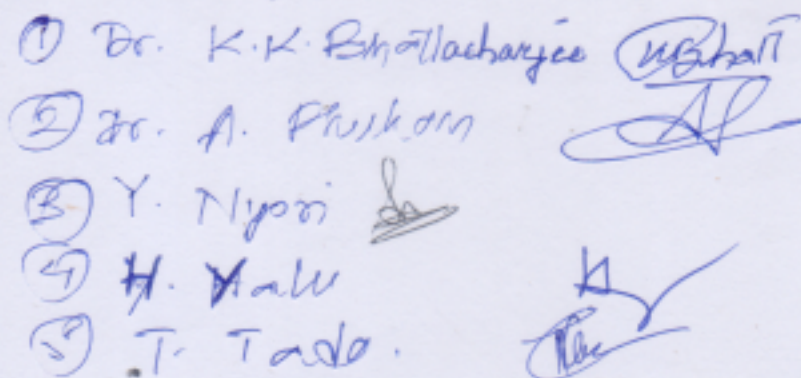 ① Dr. K.K. Bhattacharjee
② Dr. A.
③ Y. Nyori
④ H. Yalu
⑤ T. Tado.